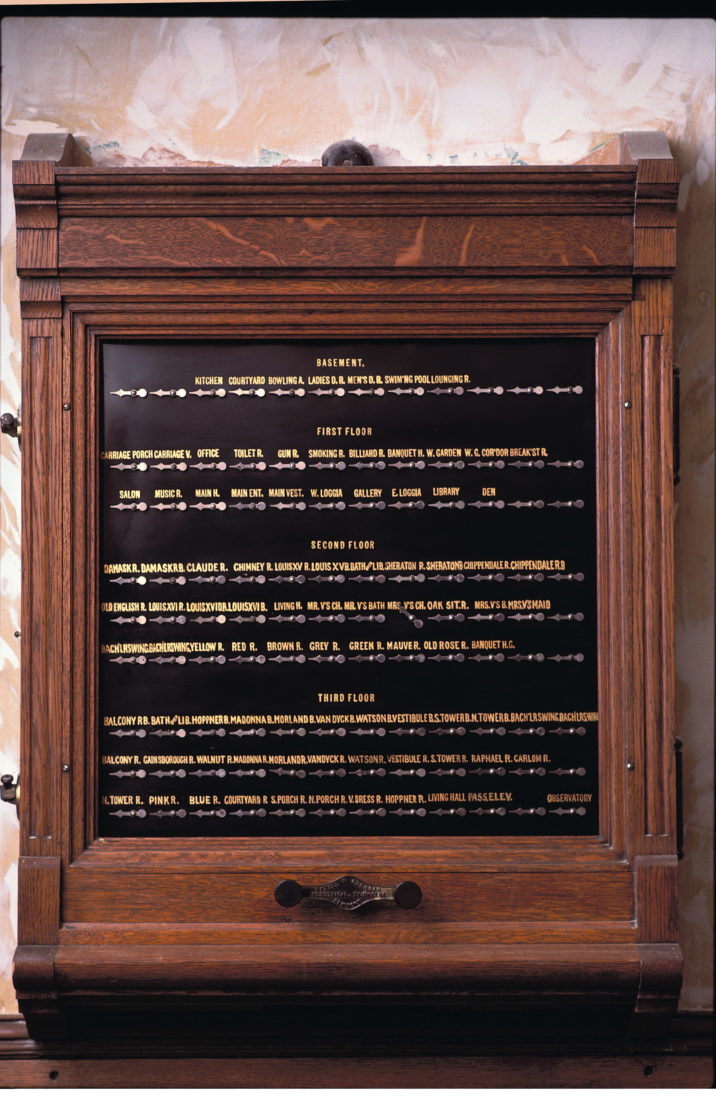 BASEMENT.
KITCHEN COURTYARD BOWLING A. LADIES D. R. MEN'S D. R. SWIM'NG POOL LOUNGING R.
FIRST FLOOR
CARRIAGE PORCH CARRIAGE V. OFFICE TOILET R. GUN R. SMOKING R. BILLIARD R. BANQUET H. W. GARDEN W. G. COR'DOR BREAK'ST R.
SALON MUSIC R. MAIN H. MAIN ENT. MAIN VEST. W. LOGGIA GALLERY E. LOGGIA LIBRARY DEN
SECOND FLOOR
DAMASK R. DAMASK R B. CLAUDE R. CHIMNEY R. LOUIS XV R. LOUIS XV B. BATH of LIB. SHERATON R. SHERATON B CHIPPENDALE R. CHIPPENDALE R.B
OLD ENGLISH R. LOUIS XVI R. LOUIS XVI DR. LOUIS XVI B. LIVING H. MR. V'S CH. MR. V'S BATH MRS. V'S CH. OAK SIT. R. MRS. V'S B. MRS. V'S MAID
BACH'LRS WING BACH'LRS WING YELLOW R. RED R. BROWN R. GREY R. GREEN R. MAUVE R. OLD ROSE R. BANQUET H. G.
THIRD FLOOR
BALCONY R B. BATH of LI B. HOPPNER B. MADONNA B. MORLAND B. VAN DYCK B. WATSON B. VESTIBULE B. S. TOWER B. N. TOWER B. BACH'LRS WING BACH'LRS WING
BALCONY R. GAINSBOROUGH R. WALNUT R. MADONNA R. MORLAND R. VANDYCK R. WATSON R. VESTIBULE R. S. TOWER R. RAPHAEL R. CARLOM R.
N. TOWER R. PINK R. BLUE R. COURTYARD R S. PORCH R. N. PORCH R. V. DRESS R. HOPPNER R. LIVING HALL PASS. ELEV. OBSERVATORY